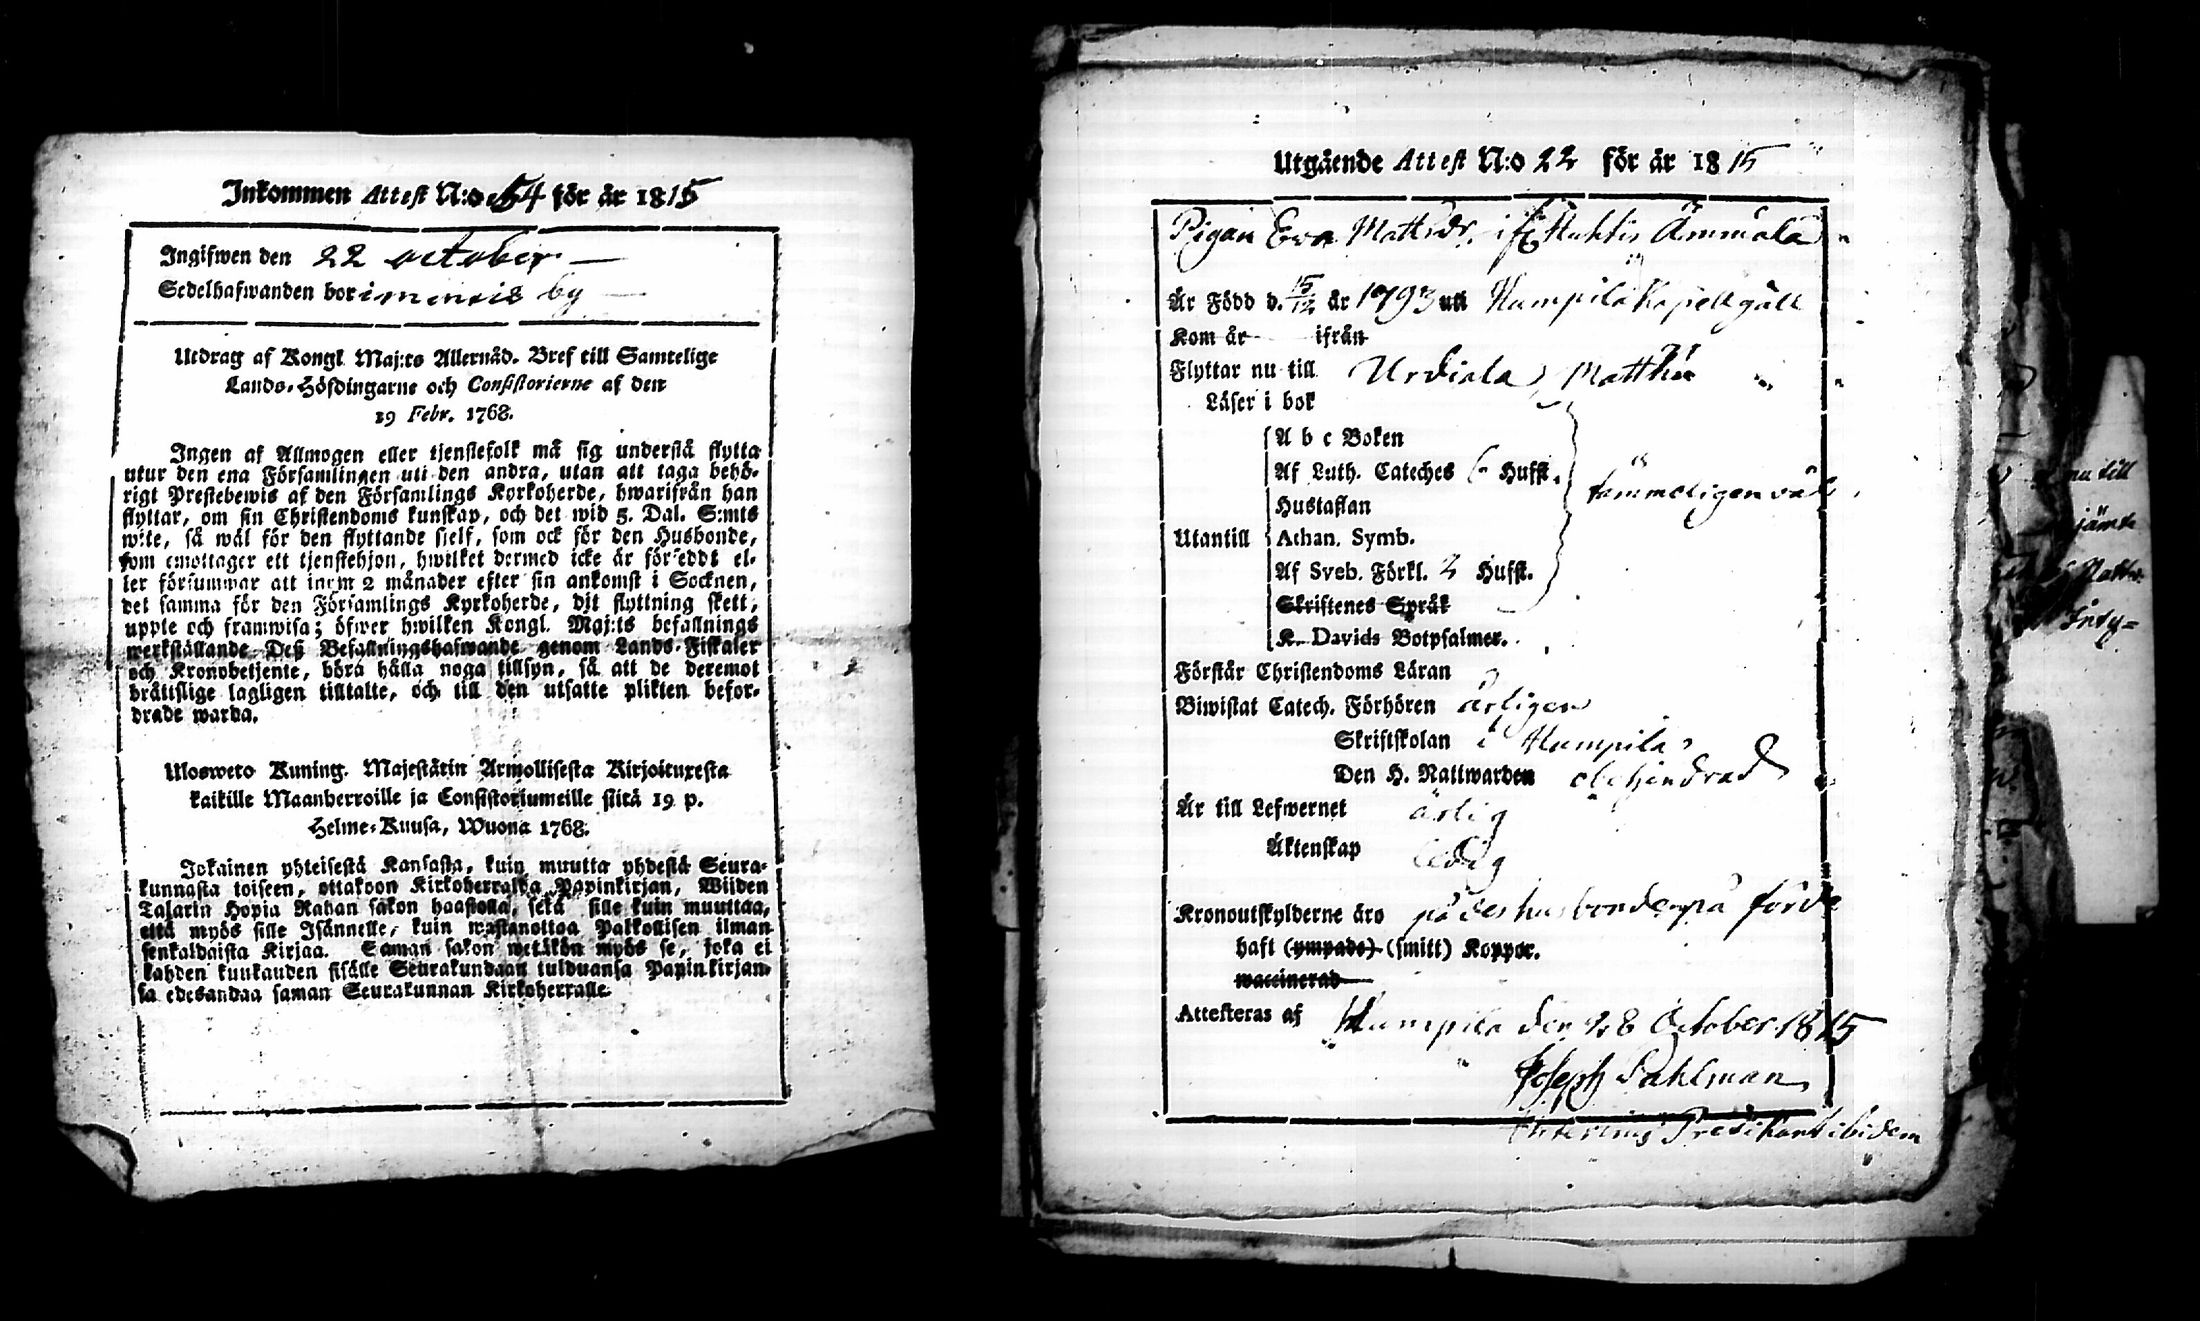 Inkommen Attest N:o 54 för år 1815
Ingifwen den 22 october
Sedelhafwanden bor i menois by
Utdrag af Kongl. Maj:ts Allernåd. Bref till Samtelige
Lands-Höfdingarne och Consistorierne af den
19 Febr. 1768.
Ingen af Allmogen eller tjenstefolk må sig understå flytta
utur den ena Församlingen uti den andra, utan att taga behö-
rigt Prestebewis af den Församlings Kyrkoherde, hwarifrån han
flyttar, om sin Christendoms kunskap, och det wid 5. Dal. S:mts
wite, så wäl för den flyttande sielf, som ock för den Husbonde,
som emottager ett tjenstehjon, hwilket dermed icke är försedt el-
ler försummar att inom 2 månader efter sin ankomst i Socknen,
det samma för den Församlings Kyrkoherde, dit flyttning skett,
uppte och framwisa; öfwer hwilken Kongl. Maj:ts befallnings
werkställande Deß Befallningshafwande genom Lands-Fiskaler
och Kronobetjente, böra hålla noga tillsyn, så att de deremot
bråttslige lagligen tilltalte, och till den utsatte plikten befor-
drade warda.
Ulosweto Kuning. Majestätin Armollisesta Kirjoituxesta
kaikille Maanherroille ja Consistoriumeille siitä 19 p.
Helme-Kuusa, Wuona 1768.
Jokainen yhteisestä Kansasta, kuin muutta yhdestä Seura-
kunnasta toiseen, ottakoon Kirkoherralda Papinkirjan, Wiiden
Talarin Hopia Rahan sakon haastolla, sekä sille kuin muuttaa,
että myös sille Isännelle, kuin wastanottaa Palkollisen ilman
senkaldaista Kirjaa. Saman sakon wetäkön myös se, joka ei
kahden kuukauden sisälle Seurakundaan tulduansa Papinkirjan-
sa edesandaa saman Seurakunnan Kirkoherralle.
Utgående Attest N:o 22 för år 1815
Pigan Eva Mattsdr. ifr Huhtis Ämmälä
Är Född d. 15/12 år 1793 uti Humpila Kapellgäll
Kom år ifrån
Flyttar nu till Urdiala, Matthu
Läser i bok
A b c Boken
Af Luth. Cateches 6 Hufst.
tämmeligen väl
Hustaflan
Utantill Athan. Symb.
Af Sveb. Förkl. 2 Hufst.
Skriftenes Språk
K. Davids Botpsalmer.
Förstår Christendoms Läran
Biwistat Catech. Förhören årligen
Skriftskolan i Humpila
Den H. Nattwarden obehindrad
Är till Lefwernet ärlig
Äktenskap ledig
Kronoutskylderne äro på des husbonde påförde
haft (ympade) (smitt) Koppor.
waccinerad
Attesteras af Humpila den 28 October 1815
Joseph Pahlman
Predikant ibidem
nu till